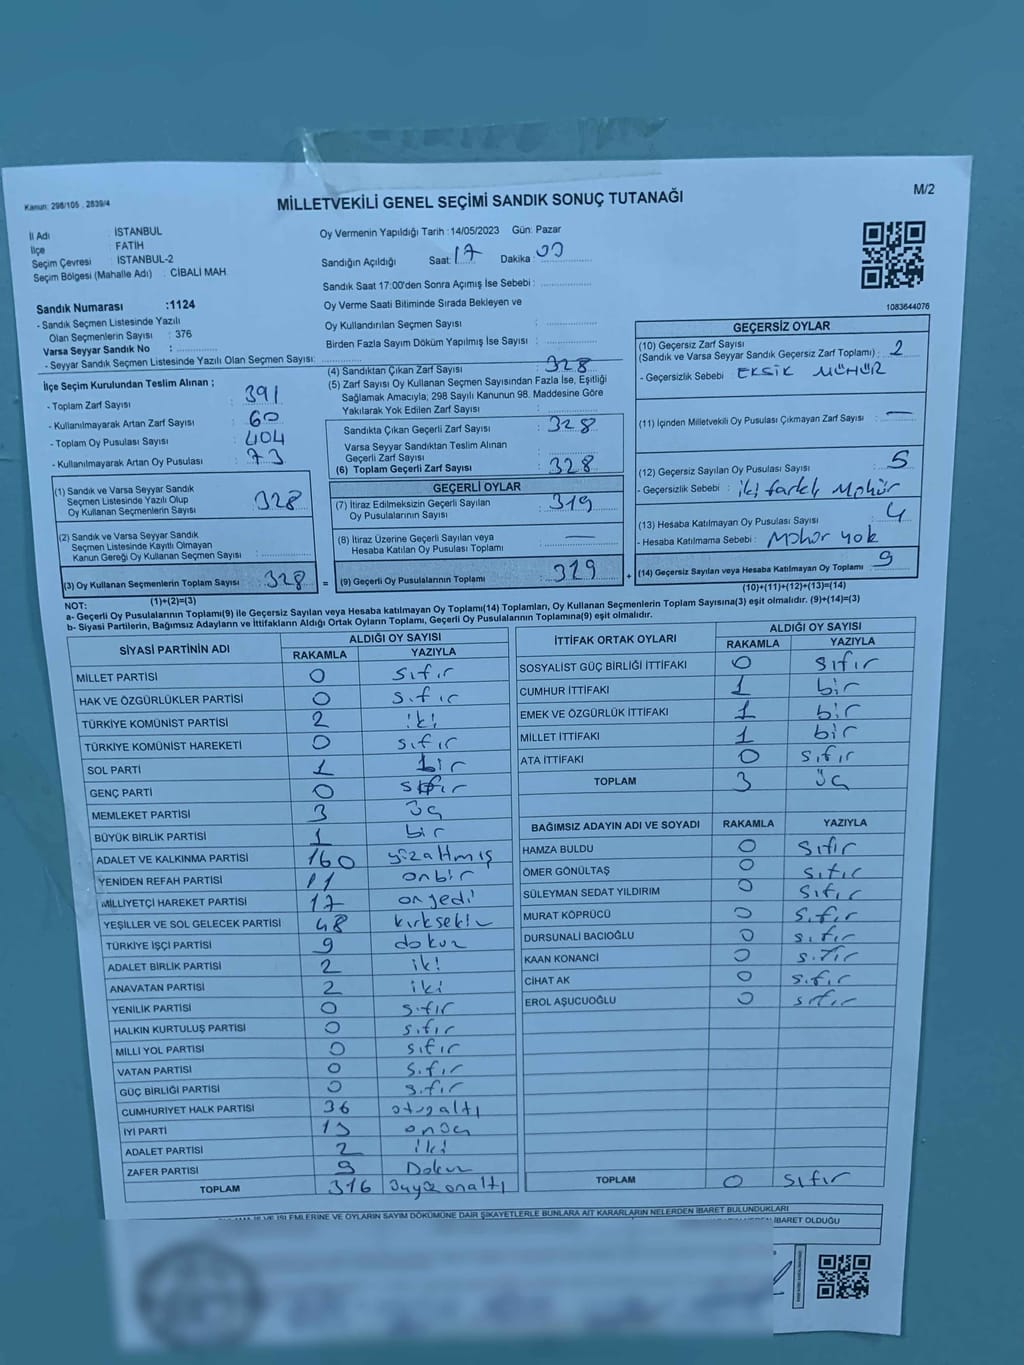 Kanun: 298/105 . 2839/4
MİLLETVEKİLİ GENEL SEÇİMİ SANDIK SONUÇ TUTANAĞI
M/2
İl Adı : İSTANBUL
İlçe : FATİH
Seçim Çevresi : İSTANBUL-2
Seçim Bölgesi (Mahalle Adı) : CİBALİ MAH
Sandık Numarası :1124
- Sandık Seçmen Listesinde Yazılı
Olan Seçmenlerin Sayısı : 376
Varsa Seyyar Sandık No :
- Seyyar Sandık Seçmen Listesinde Yazılı Olan Seçmen Sayısı:
Oy Vermenin Yapıldığı Tarih :14/05/2023 Gün: Pazar
Sandığın Açıldığı Saat: 17 Dakika: 00
Sandık Saat 17:00'den Sonra Açımış İse Sebebi :
Oy Verme Saati Bitiminde Sırada Bekleyen ve
Oy Kullandırılan Seçmen Sayısı :
Birden Fazla Sayım Döküm Yapılmış İse Sayısı :
1083644076
İlçe Seçim Kurulundan Teslim Alınan ;
- Toplam Zarf Sayısı : 391
- Kullanılmayarak Artan Zarf Sayısı : 60
- Toplam Oy Pusulası Sayısı : 404
- Kullanılmayarak Artan Oy Pusulası : 73
(1) Sandık ve Varsa Seyyar Sandık
Seçmen Listesinde Yazılı Olup
Oy Kullanan Seçmenlerin Sayısı : 328
(2) Sandık ve Varsa Seyyar Sandık
Seçmen Listesinde Kayıtlı Olmayan
Kanun Gereği Oy Kullanan Seçmen Sayısı :
(3) Oy Kullanan Seçmenlerin Toplam Sayısı : 328
(1)+(2)=(3)
(4) Sandıktan Çıkan Zarf Sayısı : 328
(5) Zarf Sayısı Oy Kullanan Seçmen Sayısından Fazla İse, Eşitliği
Sağlamak Amacıyla; 298 Sayılı Kanunun 98. Maddesine Göre
Yakılarak Yok Edilen Zarf Sayısı :
Sandıkta Çıkan Geçerli Zarf Sayısı : 328
Varsa Seyyar Sandıktan Teslim Alınan
Geçerli Zarf Sayısı :
(6) Toplam Geçerli Zarf Sayısı : 328
GEÇERLİ OYLAR
(7) İtiraz Edilmeksizin Geçerli Sayılan
Oy Pusulalarının Sayısı : 319
(8) İtiraz Üzerine Geçerli Sayılan veya
Hesaba Katılan Oy Pusulası Toplamı : —
= (9) Geçerli Oy Pusulalarının Toplamı : 319 +
GEÇERSİZ OYLAR
(10) Geçersiz Zarf Sayısı
(Sandık ve Varsa Seyyar Sandık Geçersiz Zarf Toplamı) : 2
- Geçersizlik Sebebi : EKSİK MÜHÜR
(11) İçinden Milletvekili Oy Pusulası Çıkmayan Zarf Sayısı : —
(12) Geçersiz Sayılan Oy Pusulası Sayısı : 5
- Geçersizlik Sebebi : iki farklı Mühür
(13) Hesaba Katılmayan Oy Pusulası Sayısı : 4
- Hesaba Katılmama Sebebi : Mühür yok
(14) Geçersiz Sayılan veya Hesaba Katılmayan Oy Toplamı : 9
(10)+(11)+(12)+(13)=(14)
NOT:
a- Geçerli Oy Pusulalarının Toplamı(9) ile Geçersiz Sayılan veya Hesaba katılmayan Oy Toplamı(14) Toplamları, Oy Kullanan Seçmenlerin Toplam Sayısına(3) eşit olmalıdır. (9)+(14)=(3)
b- Siyasi Partilerin, Bağımsız Adayların ve İttifakların Aldığı Ortak Oyların Toplamı, Geçerli Oy Pusulalarının Toplamına(9) eşit olmalıdır.
SİYASİ PARTİNİN ADI ALDIĞI OY SAYISI
RAKAMLA YAZIYLA
MİLLET PARTİSİ 0 sıfır
HAK VE ÖZGÜRLÜKLER PARTİSİ 0 sıfır
TÜRKİYE KOMÜNİST PARTİSİ 2 iki
TÜRKİYE KOMÜNİST HAREKETİ 0 sıfır
SOL PARTİ 1 bir
GENÇ PARTİ 0 sıfır
MEMLEKET PARTİSİ 3 üç
BÜYÜK BİRLİK PARTİSİ 1 bir
ADALET VE KALKINMA PARTİSİ 160 yüzaltmış
YENİDEN REFAH PARTİSİ 11 onbir
MİLLİYETÇİ HAREKET PARTİSİ 17 onyedi
YEŞİLLER VE SOL GELECEK PARTİSİ 48 kırksekiz
TÜRKİYE İŞÇİ PARTİSİ 9 dokuz
ADALET BİRLİK PARTİSİ 2 iki
ANAVATAN PARTİSİ 2 iki
YENİLİK PARTİSİ 0 sıfır
HALKIN KURTULUŞ PARTİSİ 0 sıfır
MİLLİ YOL PARTİSİ 0 sıfır
VATAN PARTİSİ 0 sıfır
GÜÇ BİRLİĞİ PARTİSİ 0 sıfır
CUMHURİYET HALK PARTİSİ 36 otuzaltı
İYİ PARTİ 13 onüç
ADALET PARTİSİ 2 iki
ZAFER PARTİSİ 9 Dokuz
TOPLAM 316 üçyüzonaltı
İTTİFAK ORTAK OYLARI ALDIĞI OY SAYISI
RAKAMLA YAZIYLA
SOSYALİST GÜÇ BİRLİĞİ İTTİFAKI 0 sıfır
CUMHUR İTTİFAKI 1 bir
EMEK VE ÖZGÜRLÜK İTTİFAKI 1 bir
MİLLET İTTİFAKI 1 bir
ATA İTTİFAKI 0 sıfır
TOPLAM 3 üç
BAĞIMSIZ ADAYIN ADI VE SOYADI RAKAMLA YAZIYLA
HAMZA BULDU 0 sıfır
ÖMER GÖNÜLTAŞ 0 sıfır
SÜLEYMAN SEDAT YILDIRIM 0 sıfır
MURAT KÖPRÜCÜ 0 sıfır
DURSUNALİ BACIOĞLU 0 sıfır
KAAN KONANCİ 0 sıfır
CİHAT AK 0 sıfır
EROL AŞUCUOĞLU 0 sıfır
TOPLAM 0 sıfır
VE İŞLEMLERİNE VE OYLARIN SAYIM DÖKÜMÜNE DAİR ŞİKAYETLERLE BUNLARA AİT KARARLARIN NELERDEN İBARET BULUNDUKLARI
İBARET OLDUĞU